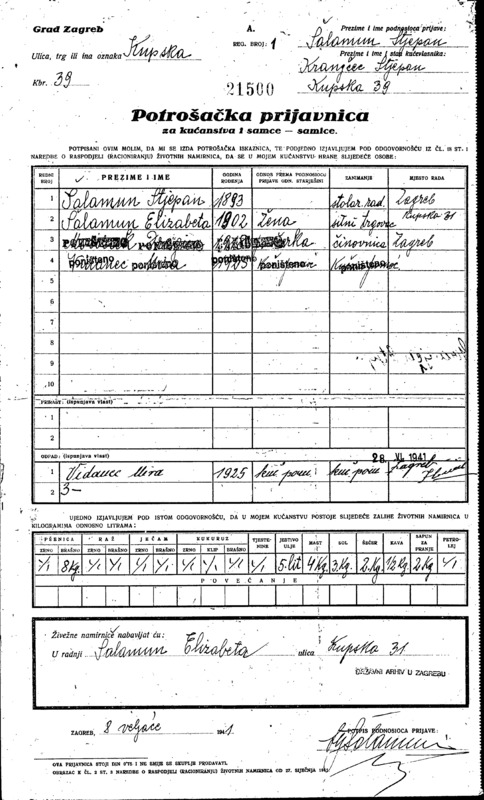 Grad Zagreb
A.
REG. BROJ: 1
Prezime i ime podnosioca prijave:
Šalamun Stjepan
Ulica, trg ili ina oznaka Kupska
Prezime i ime i stan kućevlasnika:
Kranjčec Stjepan
Kbr. 39
21500
Kupska 39
Potrošačka prijavnica
za kućanstva i samce — samice.
POTPISANI OVIM MOLIM, DA MI SE IZDA POTROŠAČKA ISKAZNICA, TE PODJEDNO IZJAVLJUJEM POD ODGOVORNOŠĆU IZ ČL. 18 ST. 1
NAREDBE O RASPODJELI (RACIONIRANJU) ŽIVOTNIH NAMIRNICA, DA SE U MOJEM KUĆANSTVU HRANE SLIJEDEĆE OSOBE:
REDNI BROJ PREZIME I IME GODINA ROĐENJA ODNOS PREMA PODNOSIOCU PRIJAVE ODN. STARJEŠINI ZANIMANJE MJESTO RADA
1 Šalamun Stjepan 1893 stolar. rad. Zagreb
2 Šalamun Elizabeta 1902 Žena sitni trgovac Kupska 31
3 poništeno činovnica Zagreb
4 poništeno 1925 poništeno poništeno
5
6
7
8
9
10
PRIRAST: (ispunjava vlast)
1
2
OTPAD: (ispunjava vlast) 28. VI. 1941
1 Vidanec Mira 1925 kuć. pom. kuć. pom. Zagreb
2 3-
UJEDNO IZJAVLJUJEM POD ISTOM ODGOVORNOŠĆU, DA U MOJEM KUĆANSTVU POSTOJE SLIJEDEĆE ZALIHE ŽIVOTNIH NAMIRNICA U
KILOGRAMIMA ODNOSNO LITRAMA:
PŠENICA RAŽ JEČAM KUKURUZ TJESTENINE JESTIVO ULJE MAST SOL ŠEĆER KAVA SAPUN ZA PRANJE PETROLEJ
ZRNO BRAŠNO ZRNO BRAŠNO ZRNO BRAŠNO ZRNO KLIP BRAŠNO
8 kg. 5 lit 4 kg. 3 kg. 2 kg. 1/2 kg. 2 kg
POVEĆANJE
Živežne namirnice nabavljat ću:
U radnji Šalamun Elizabeta ulica Kupska 31
DRŽAVNI ARHIV U ZAGREBU
ZAGREB, 8 veljače 1941
POTPIS PODNOSIOCA PRIJAVE:
OVA PRIJAVNICA STOJI DIN 0'75 I NE SMIJE SE SKUPLJE PRODAVATI.
OBRAZAC K ČL. 2 ST. 2 NAREDBE O RASPODJELI (RACIONIRANJU) ŽIVOTNIH NAMIRNICA OD 27. SIJEČNJA 1941